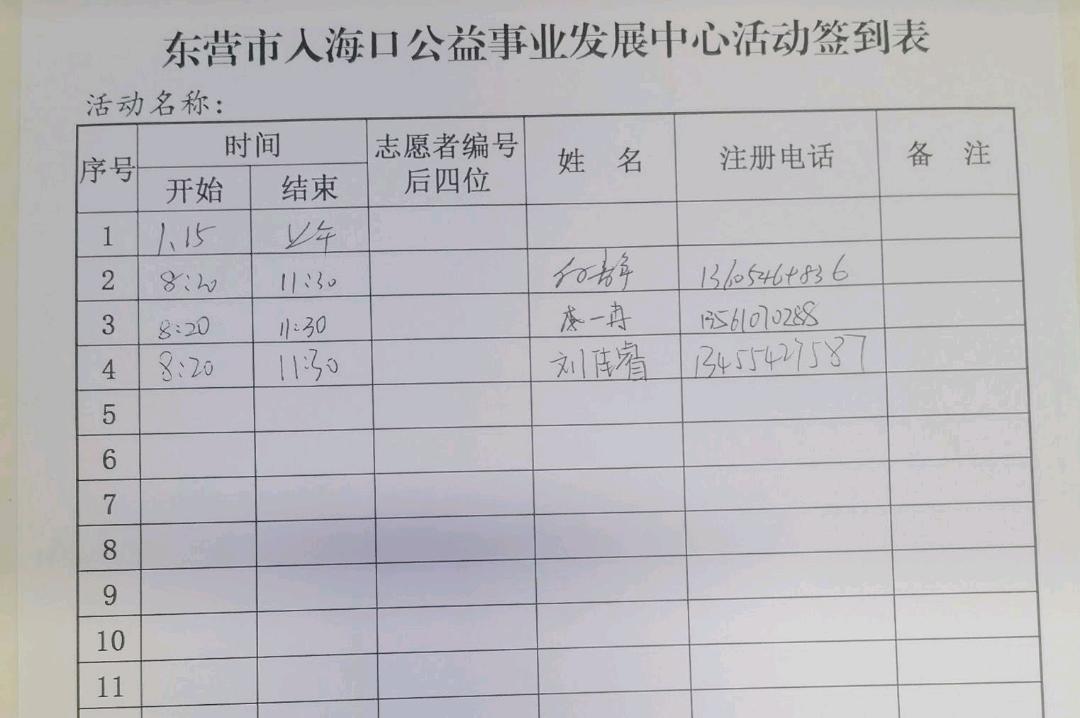 东营市入海口公益事业发展中心活动签到表
活动名称:
序号 时间 志愿者编号后四位 姓 名 注册电话 备 注
开始 结束
1 1.15 上午
2 8:20 11:30 13605464836
3 8:20 11:30 一冉 13561070288
4 8:20 11:30 刘佳睿 13455427587
5
6
7
8
9
10
11